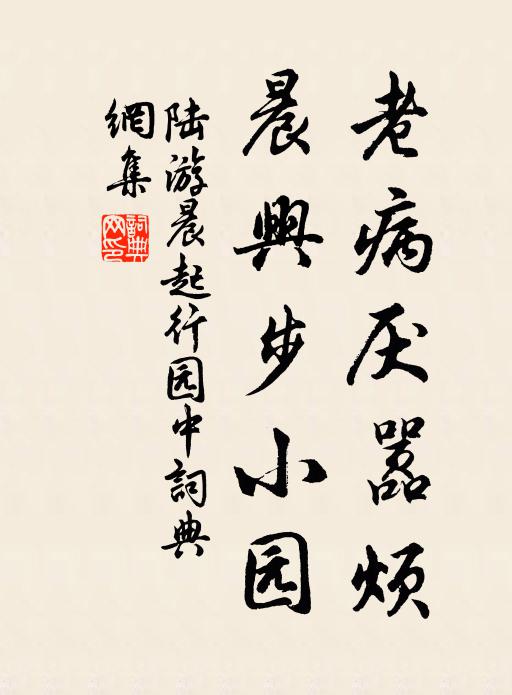 老病厌嚣烦
晨興步小园
陆游晨起行园中詞典
網集
詞典网印